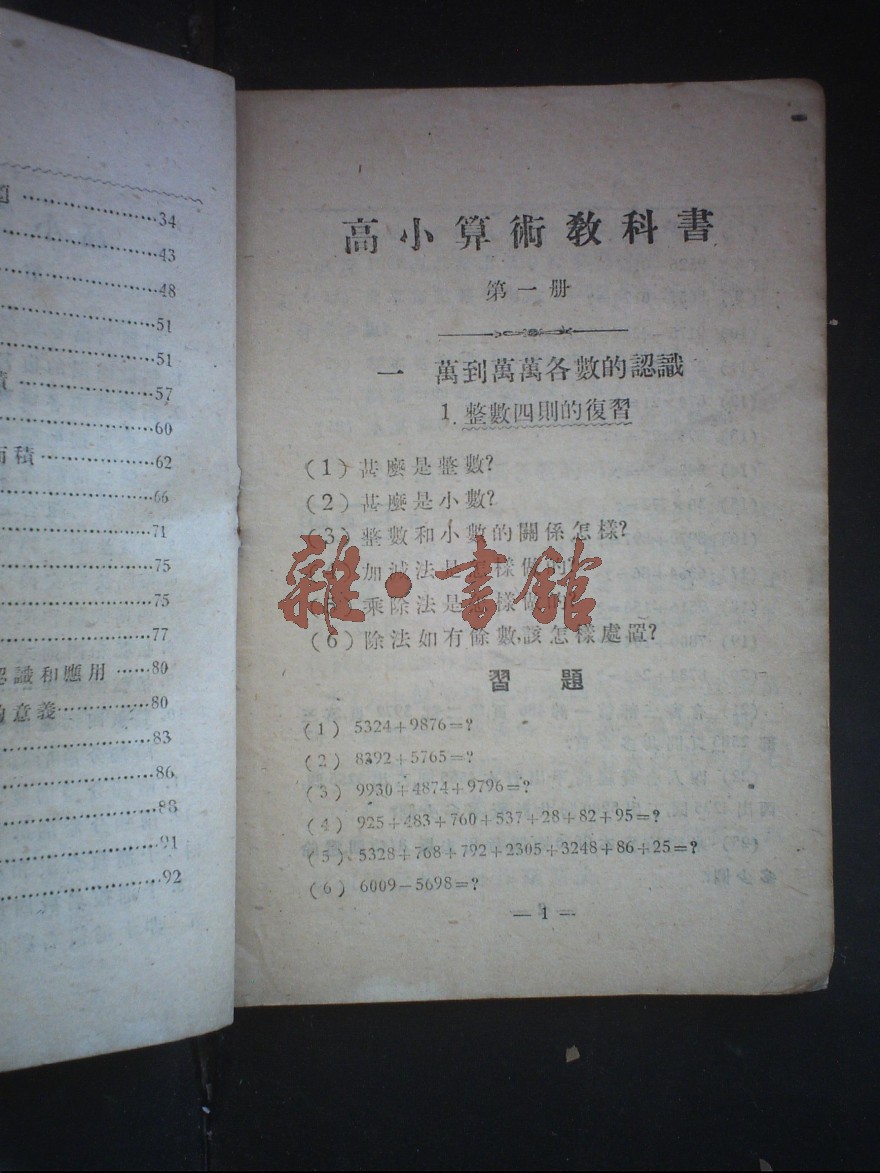 題 ··················34
··················43
··················48
··················51
··················51
··················57
··················60
面積 ··················62
··················66
··················71
··················75
··················75
··················77
認識和應用 ······80
的意義 ············80
··················83
··················86
··················88
··················91
··················92
高小算術敎科書
第一册
一 萬到萬萬各數的認識
1. 整數四則的復習
(1) 甚麼是整數?
(2) 甚麼是小數?
(3) 整數和小數的關係怎樣?
加減法是怎樣做的?
乘除法是怎樣做的
(6) 除法如有餘數,該怎樣處置?
雜·書館
習題
(1) 5324+9876=?
(2) 8392+5765=?
(3) 9930+4874+9796=?
(4) 925+483+760+537+28+82+95=?
(5) 5328+768+792+2305+3248+86+25=?
(6) 6009-5698=?
— 1 —